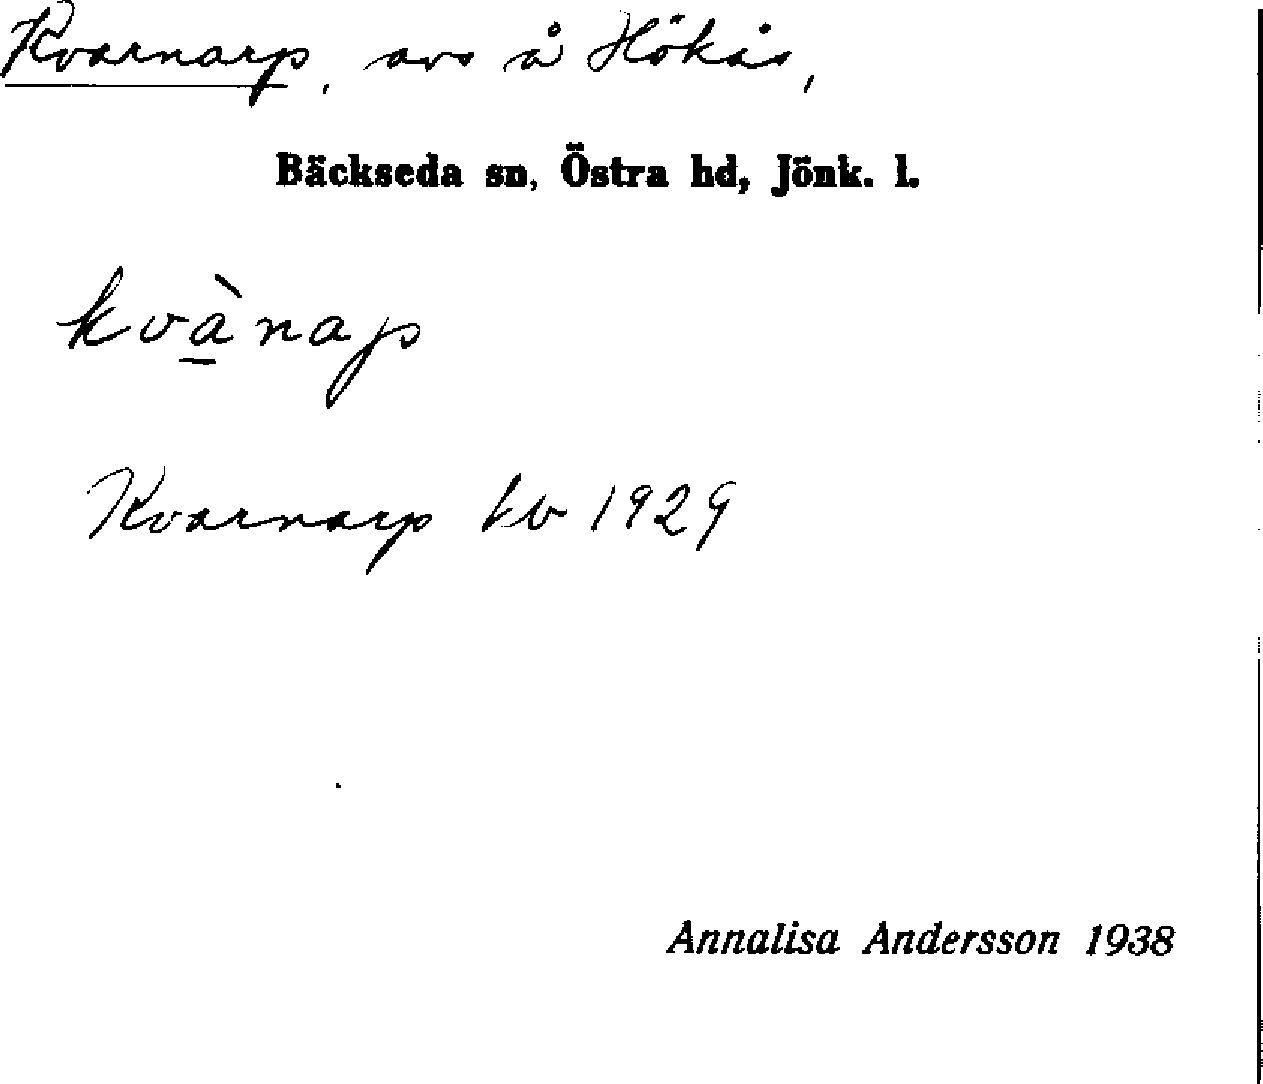 Kvarnarp, avs å Hökås,
Bäckseda sn, Östra hd, Jönk. l.
kvà̱nap
Kvarnarp tv 1929
Annalisa Andersson 1938